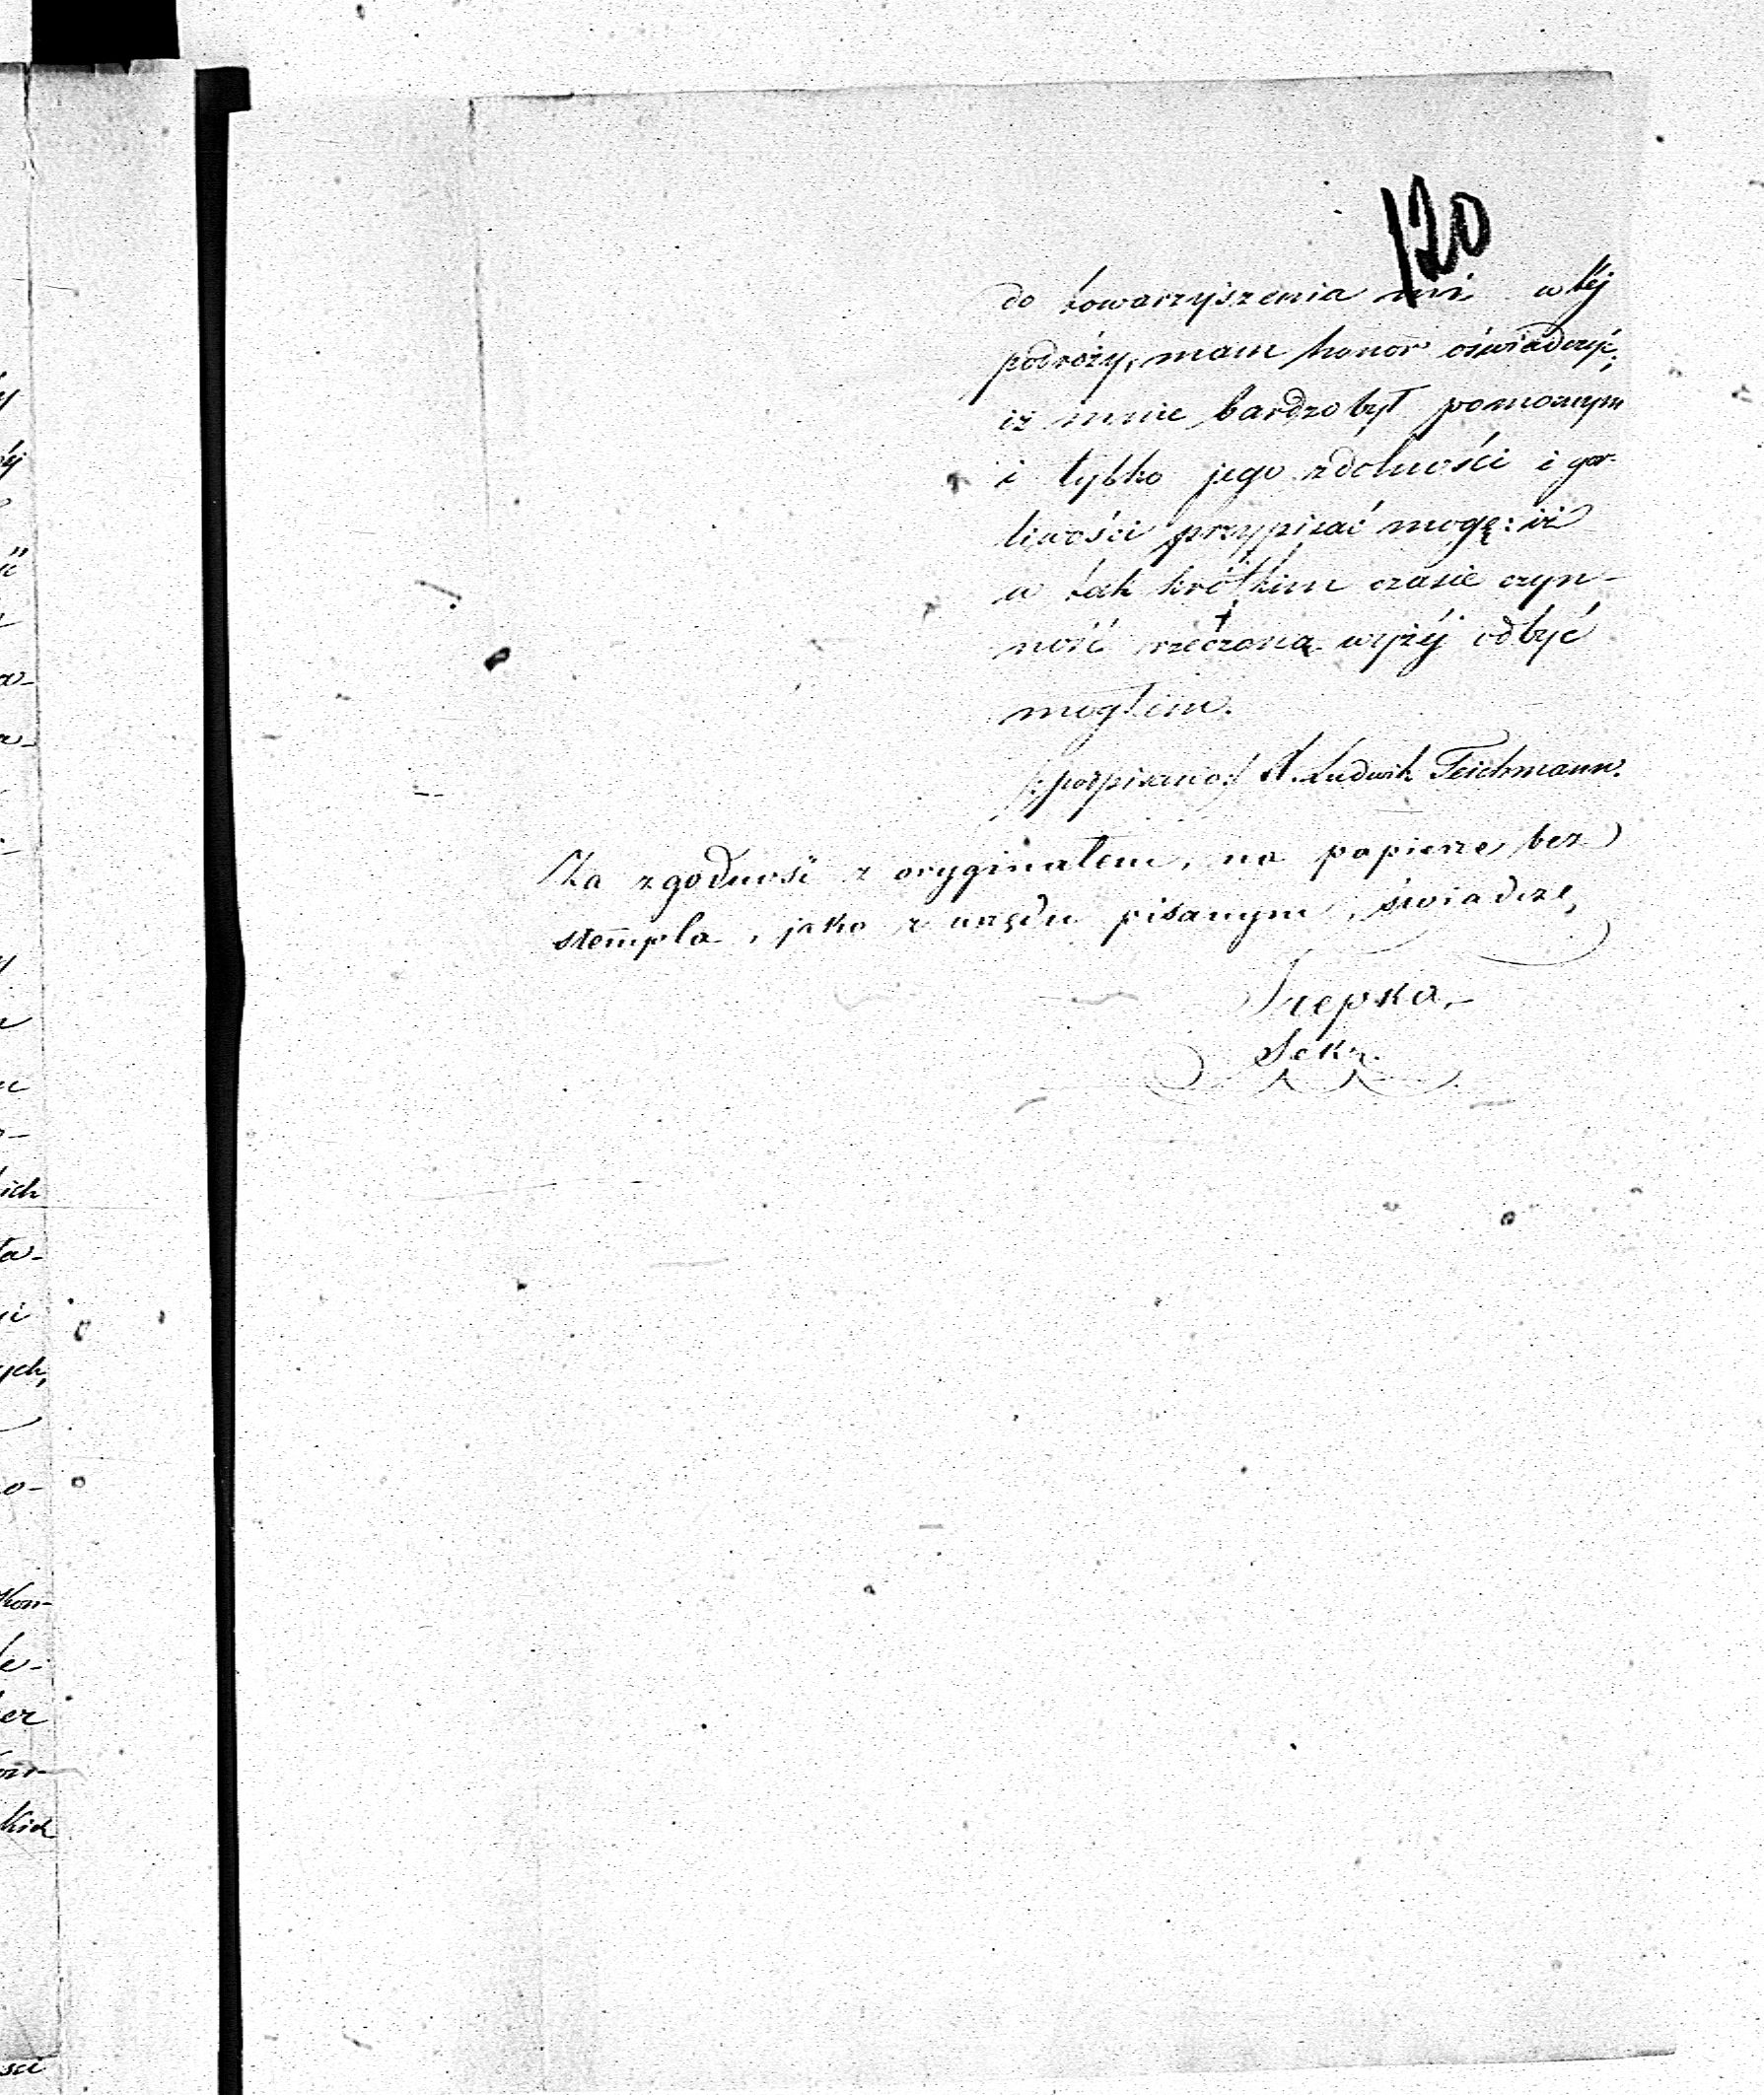 120
do towarzyszenia mi w téj
podróży, mam honor oświadczyć,
iż mnie bardzo był pomocnym
i tylko jego zdolności i gor-
liwości przypisać mogę: iż
w tak krótkim czasie czyn-
ność rzeczoną wyżéj odbyć
mogłem.
/:podpisano:/ A. Ludwik Teichmann.
Za zgodność z oryginałem, na papierze bez
stempla, jako z urzędu pisanym, świadczę,
Trepka,
Sekr.